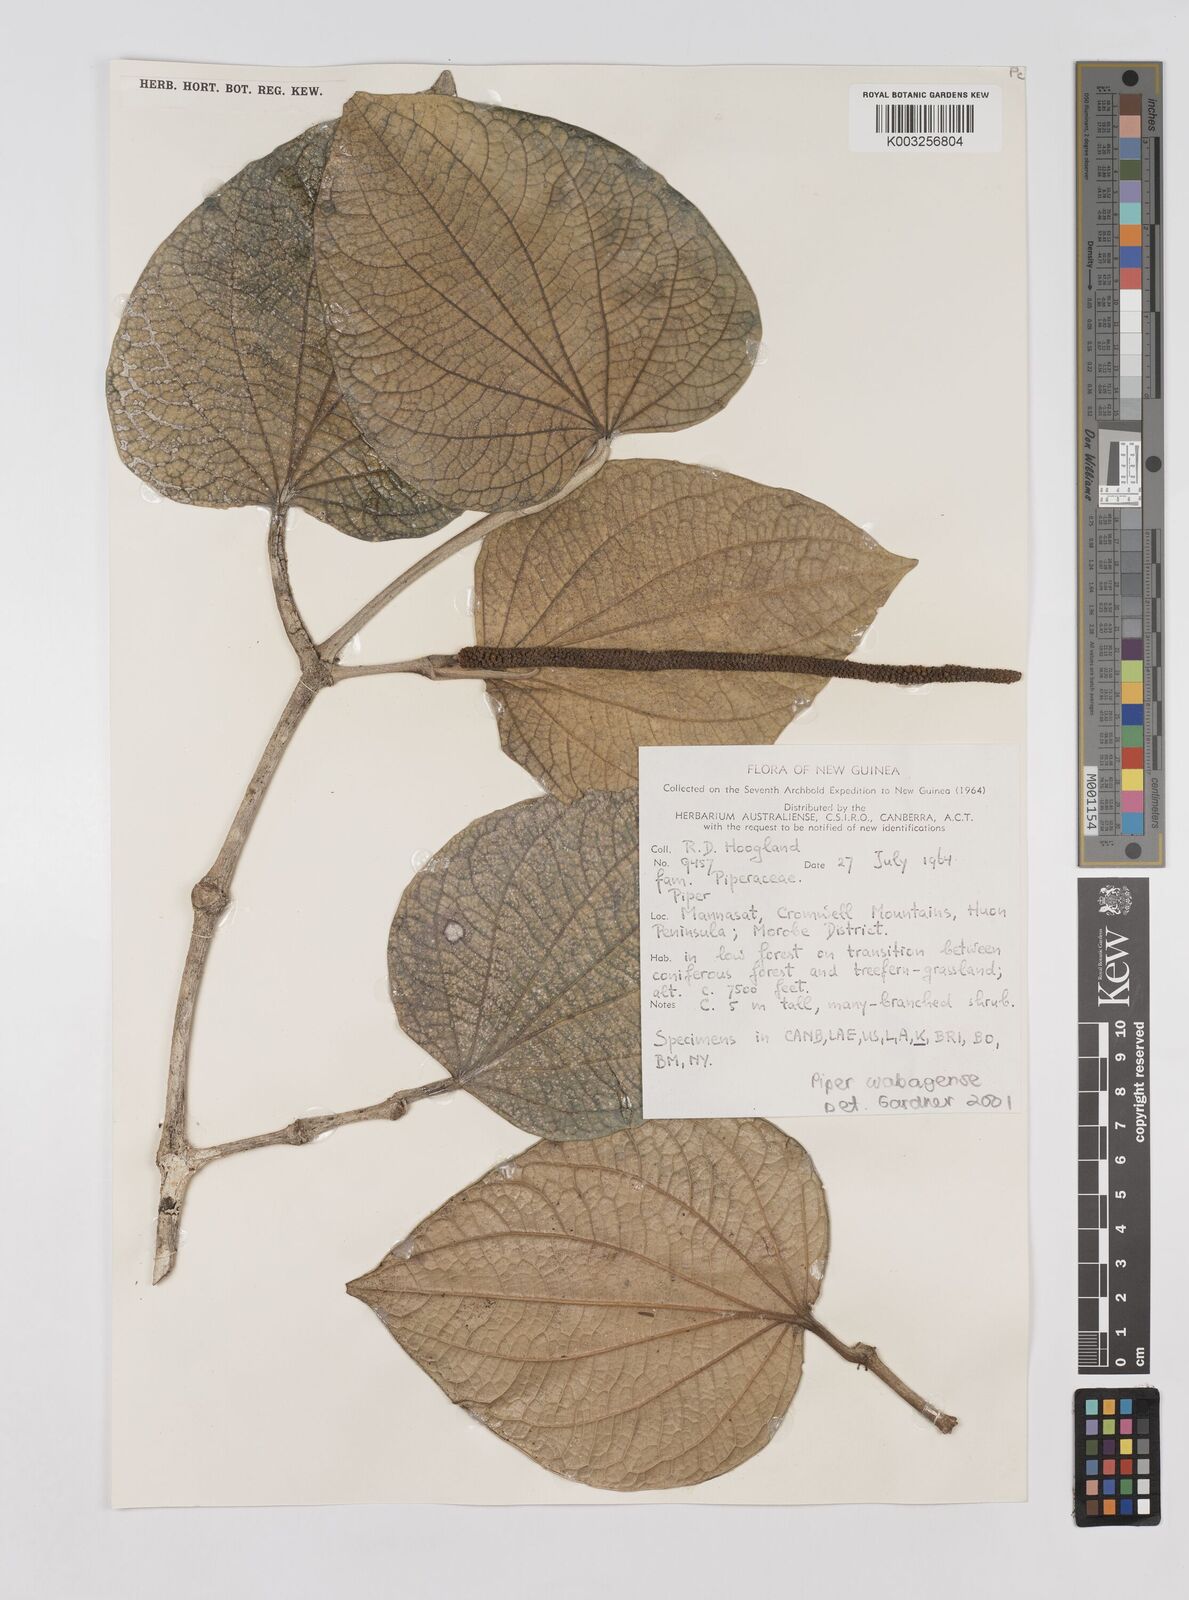 HERB. HORT. BOT. REG. KEW.
ROYAL BOTANIC GARDENS KEW
K003256804
FLORA OF NEW GUINEA
Collected on the Seventh Archbold Expedition to New Guinea (1964)
Distributed by the
HERBARIUM AUSTRALIENSE, C.S.I.R.O., CANBERRA, A.C.T.
with the request to be notified of new identifications
Coll. R.D. Hoogland
No. 9457 Date 27 July 1964
fam. Piperaceae.
Piper
Loc. Mannasat, Cromwell Mountains, Huon
Peninsula; Morobe District.
Hab. in low forest on transition between
coniferous forest and treefern-grassland;
alt. c. 7500 feet.
Notes C. 5 m tall, many-branched shrub.
Specimens in CANB, LAE, US, L, A, K, BRI, BO,
BM, NY.
Piper wabagense
Det. Gardner 2001
inches
centimeters
Density
Don Williams
M001154
Royal Botanic Gardens
Kew
copyright reserved
0 1 2 3 4 5 6 7 8 9 10
cm